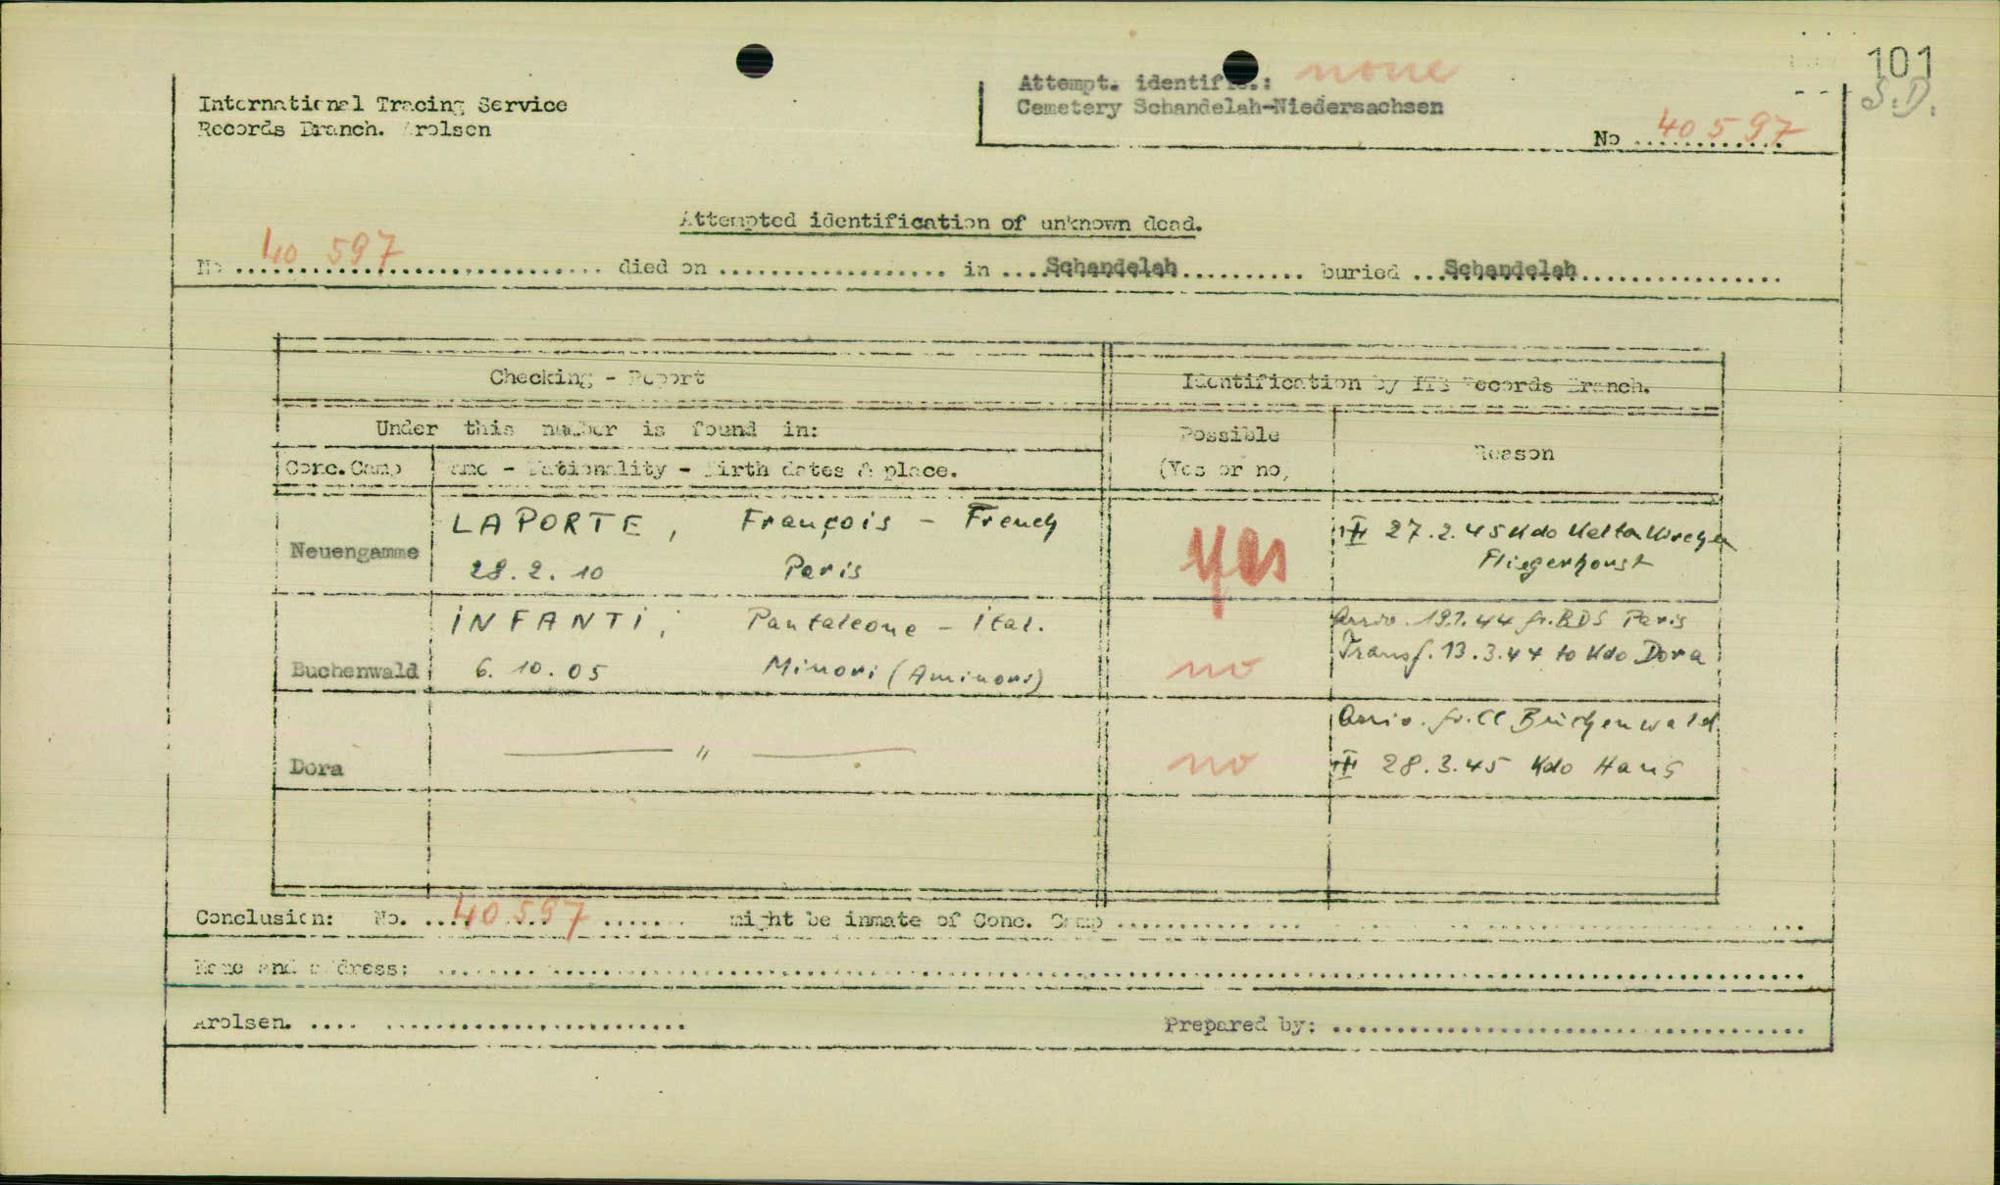 101
S.D.
International Tracing Service
Records Branch. Arolsen
Attempt. identific.: none
Cemetery Schandelah-Niedersachsen
No 40 597
Attempted identification of unknown dead.
No 40 597 died on .................. in ....Schandelah.......... buried ...Schandelah................
Checking - Report
Identification by ITS Records Branch.
Under this number is found in:
Possible
(Yes or no)
Reason
Conc.Camp Name - Nationality - Birth dates & place.
Neuengamme
LAPORTE, François - French
28.2.10 Paris
yes
27.2.45 Kdo Kaltenkirchen
Fliegerhorst
Buchenwald
INFANTI, Pantaleone - ital.
6.10.05 Minori (Aminori)
no
Arriv. 19.1.44 fr. BDS Paris
Transf. 13.3.44 to Kdo Dora
Dora
"
no
Arriv. fr. CC Buchenwald
28.3.45 Kdo Hans
Conclusion: No. 40 597 might be inmate of Conc. Camp
Name and address:
Arolsen.
Prepared by: